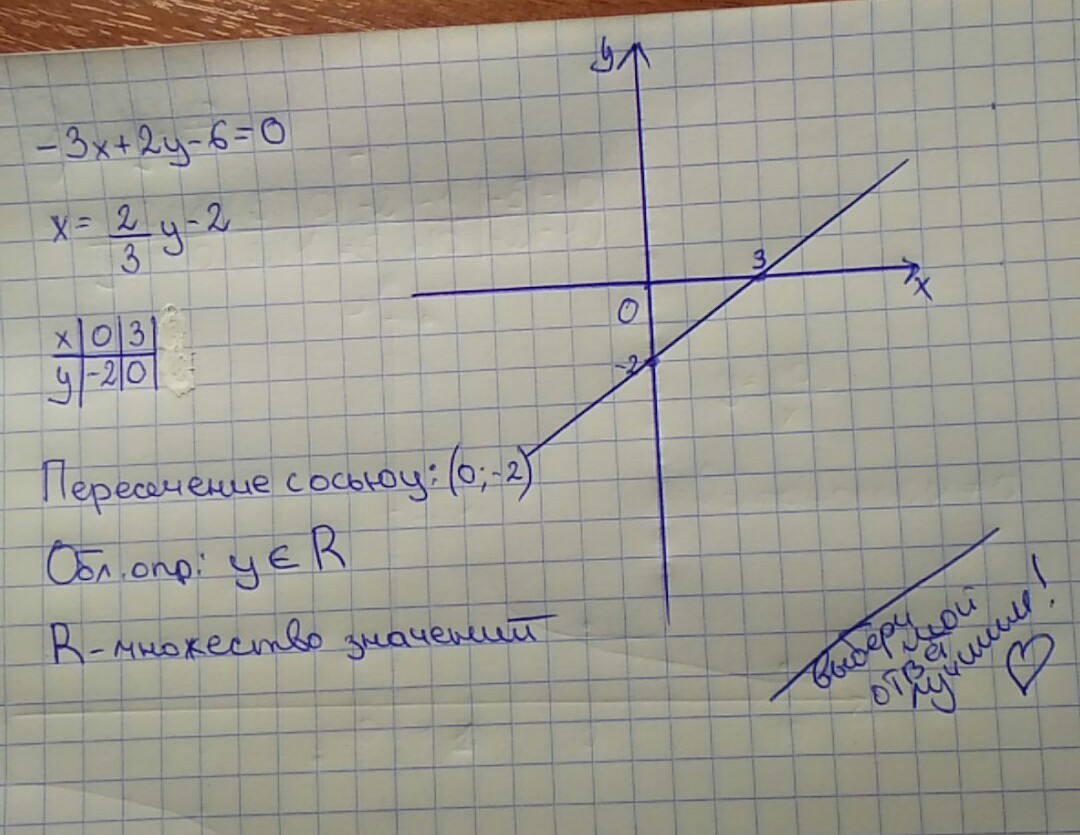 -3x+2y-6=0
x= 2/3 y-2
x | 0 | 3
y | -2 | 0
Пересечение с осью oy: (0;-2)
Обл.опр: y∈R
R-множество значений
y
3
x
0
-2
выбери
мой
ответ
лучшим!